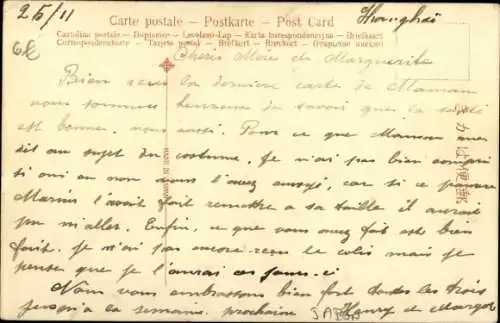 25/11
Shanghai
Carte postale – Postkarte – Post Card
Cartolina postale – Dopisnice – Levelezo-Lap – Karta korespondencyjna – Briefkaart
Correspondenzkarte – Tarjeta postal – Brefkort – Brevkort – Открытое письмо
Chers Mère et Marguerite
Bien reçu la dernière carte de Maman
nous sommes heureux de savoir que la santé
est bonne, nous aussi. Pour ce que Maman me
dit au sujet du costume, je n'ai pas bien compris
si oui ou non vous l'avez envoyé, car si ce pauvre
Marius l'avait fait remettre a sa taille il aurait
pu m'aller. Enfin, ce que vous avez fait est bien
fait. Je n'ai pas encore reçu le colis mais je
pense que je l'aurai ces jours-ci
Nous vous embrassons bien fort toutes les trois
jusqu'a la semaine prochaine Henry et Margot
MADE IN JAPAN
郵便はがき
JAPAN